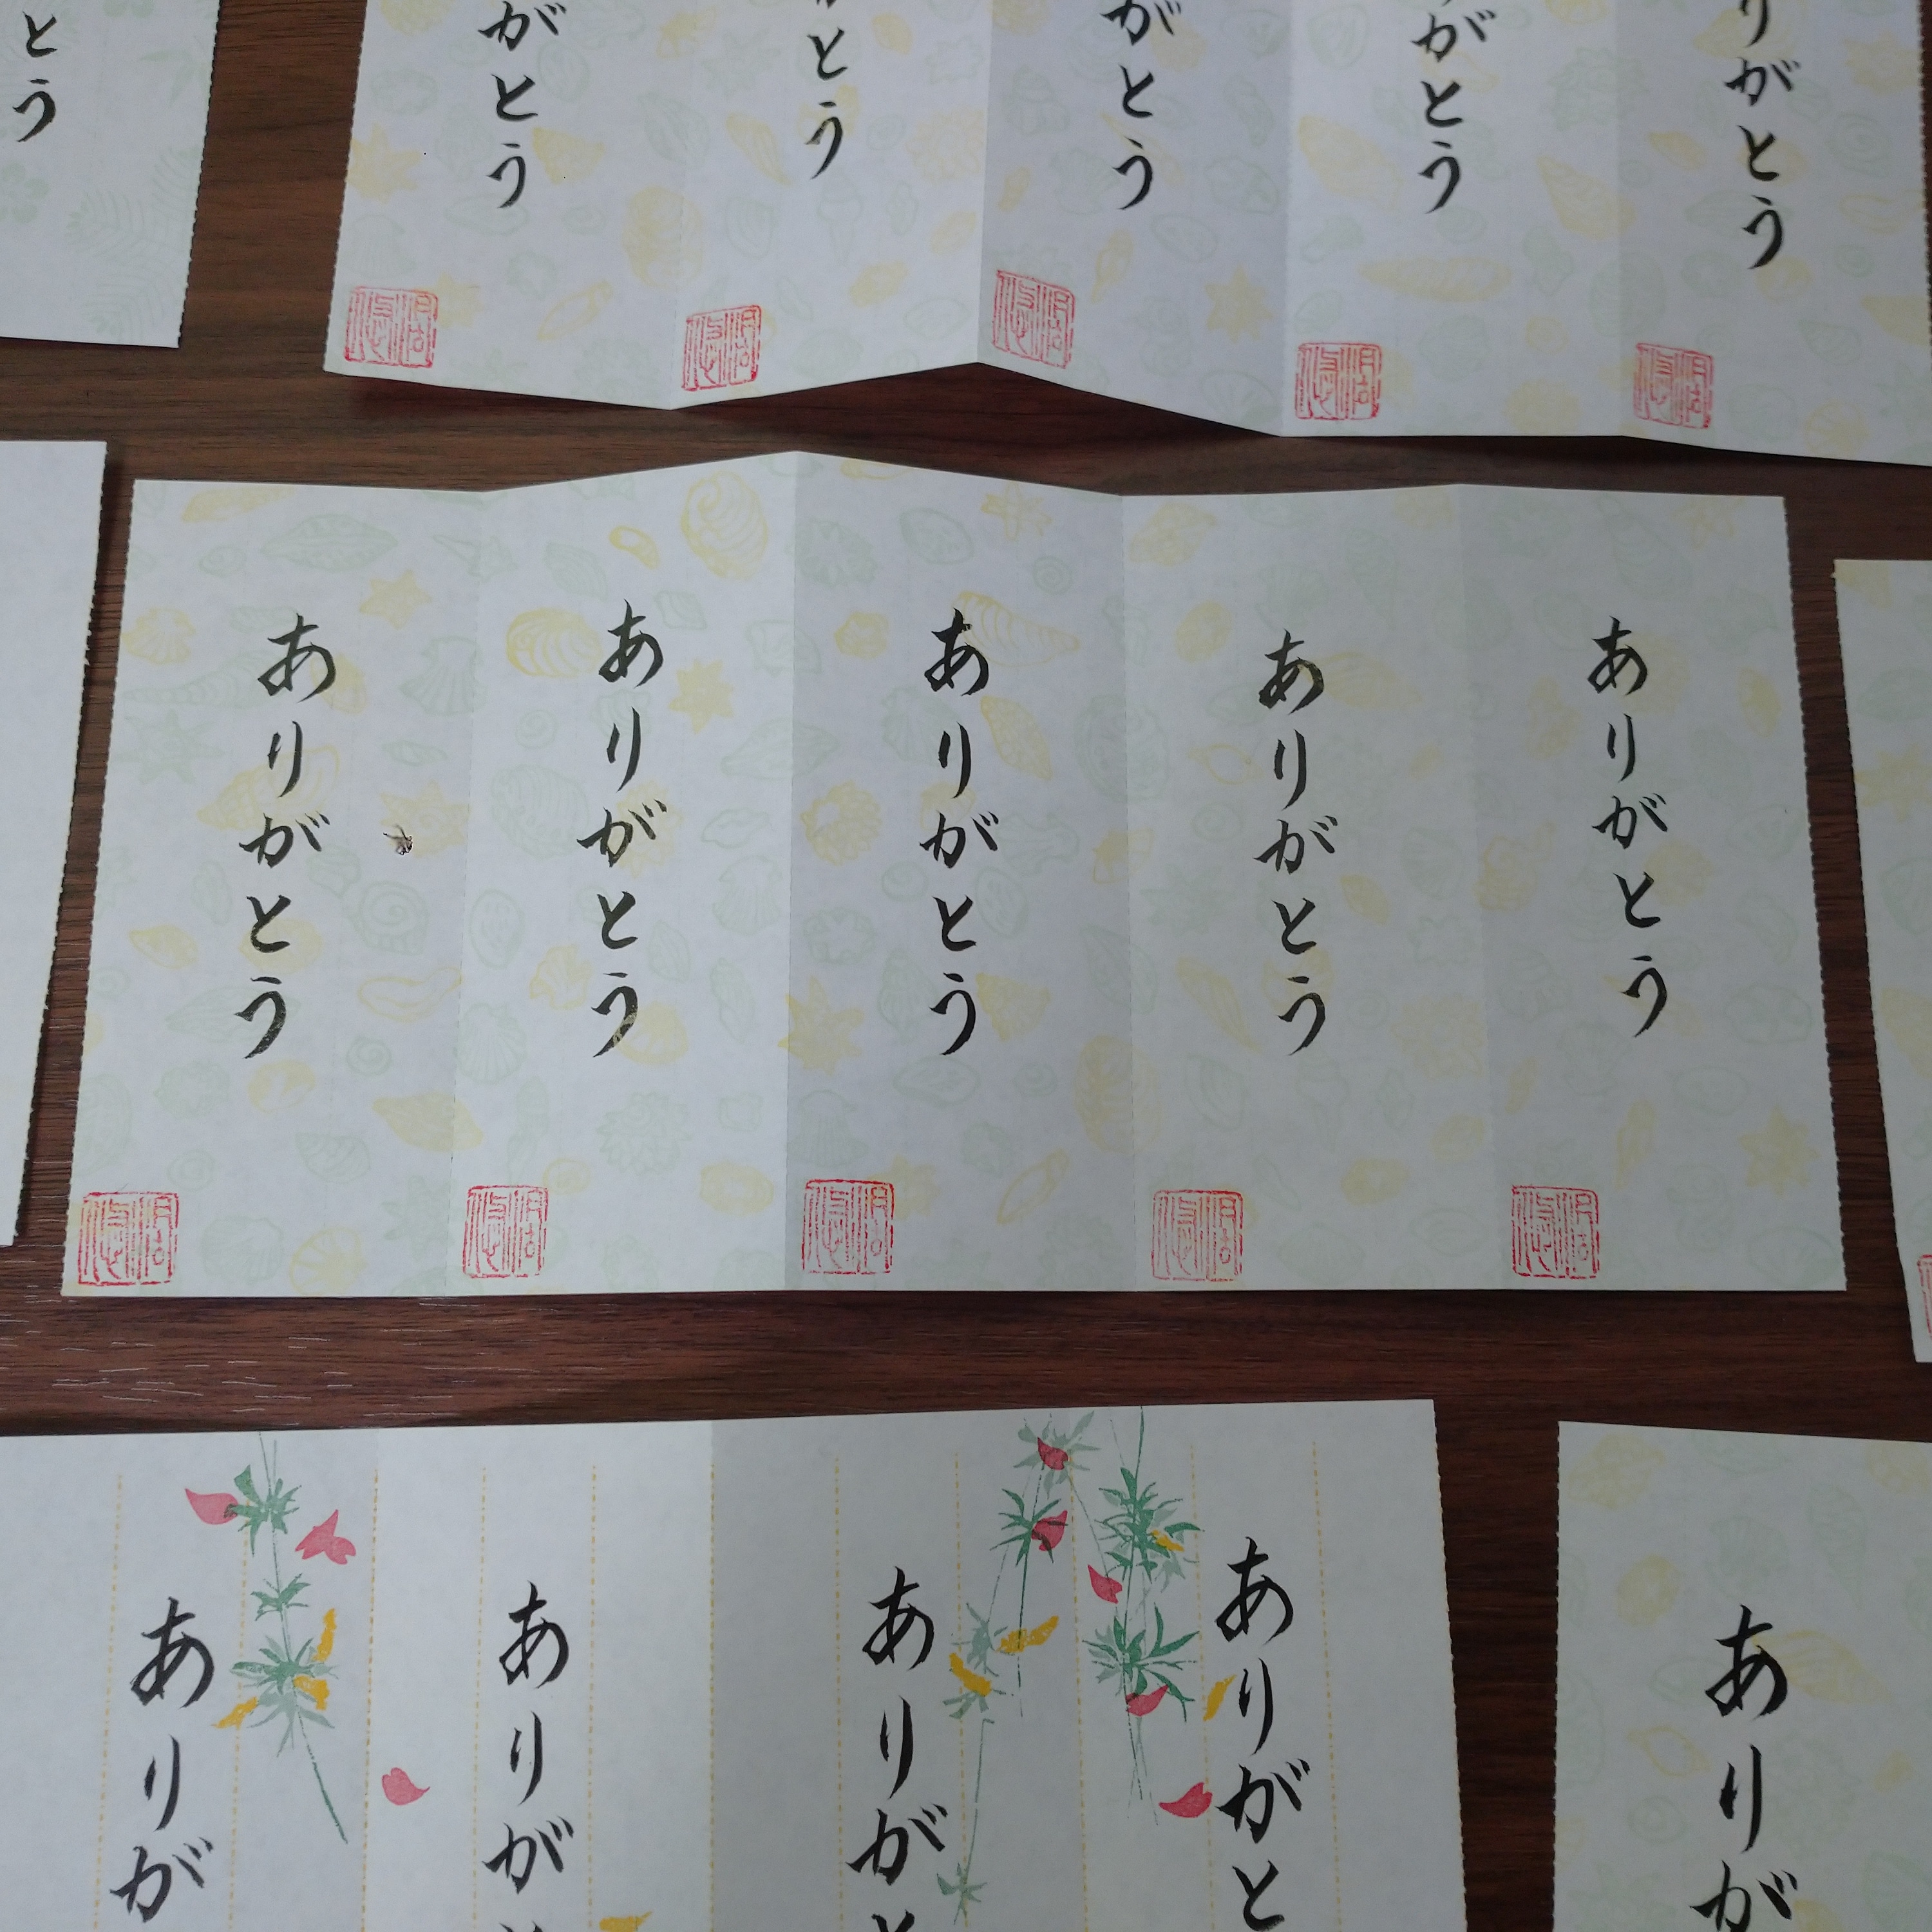 とう
がとう
とう
がとう
がとう
りがとう
ありがとう
ありがとう
ありがとう
ありがとう
ありがとう
ありが
ありが
ありが
ありがと
ありが